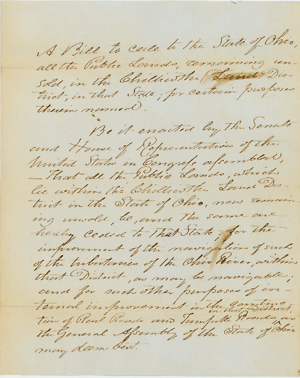 A Bill to cede to the State of Ohio,
all the Public Lands, remaining un-
sold, in the Chillicothe Land Dis-
trict, in that State; for certain purposes
therein named.
Be it enacted by the Senate
and House of Representatives of the
United States in Congress assembled,
— That all the Public Lands, which
lie within the Chillicothe Land Dis-
trict in the State of Ohio, now remain
ing unsold, be, and the same are
hereby ceded to that State, for the
improvement of the navigation of such
of the tributaries of the Ohio River, within
that District, as may be navigable;
and for such other purposes of in-
ternal improvement in the
in that District,
tion of Post Roads and Turnpike Roads, as
the General Assembly of the State of Ohio
may deem best.